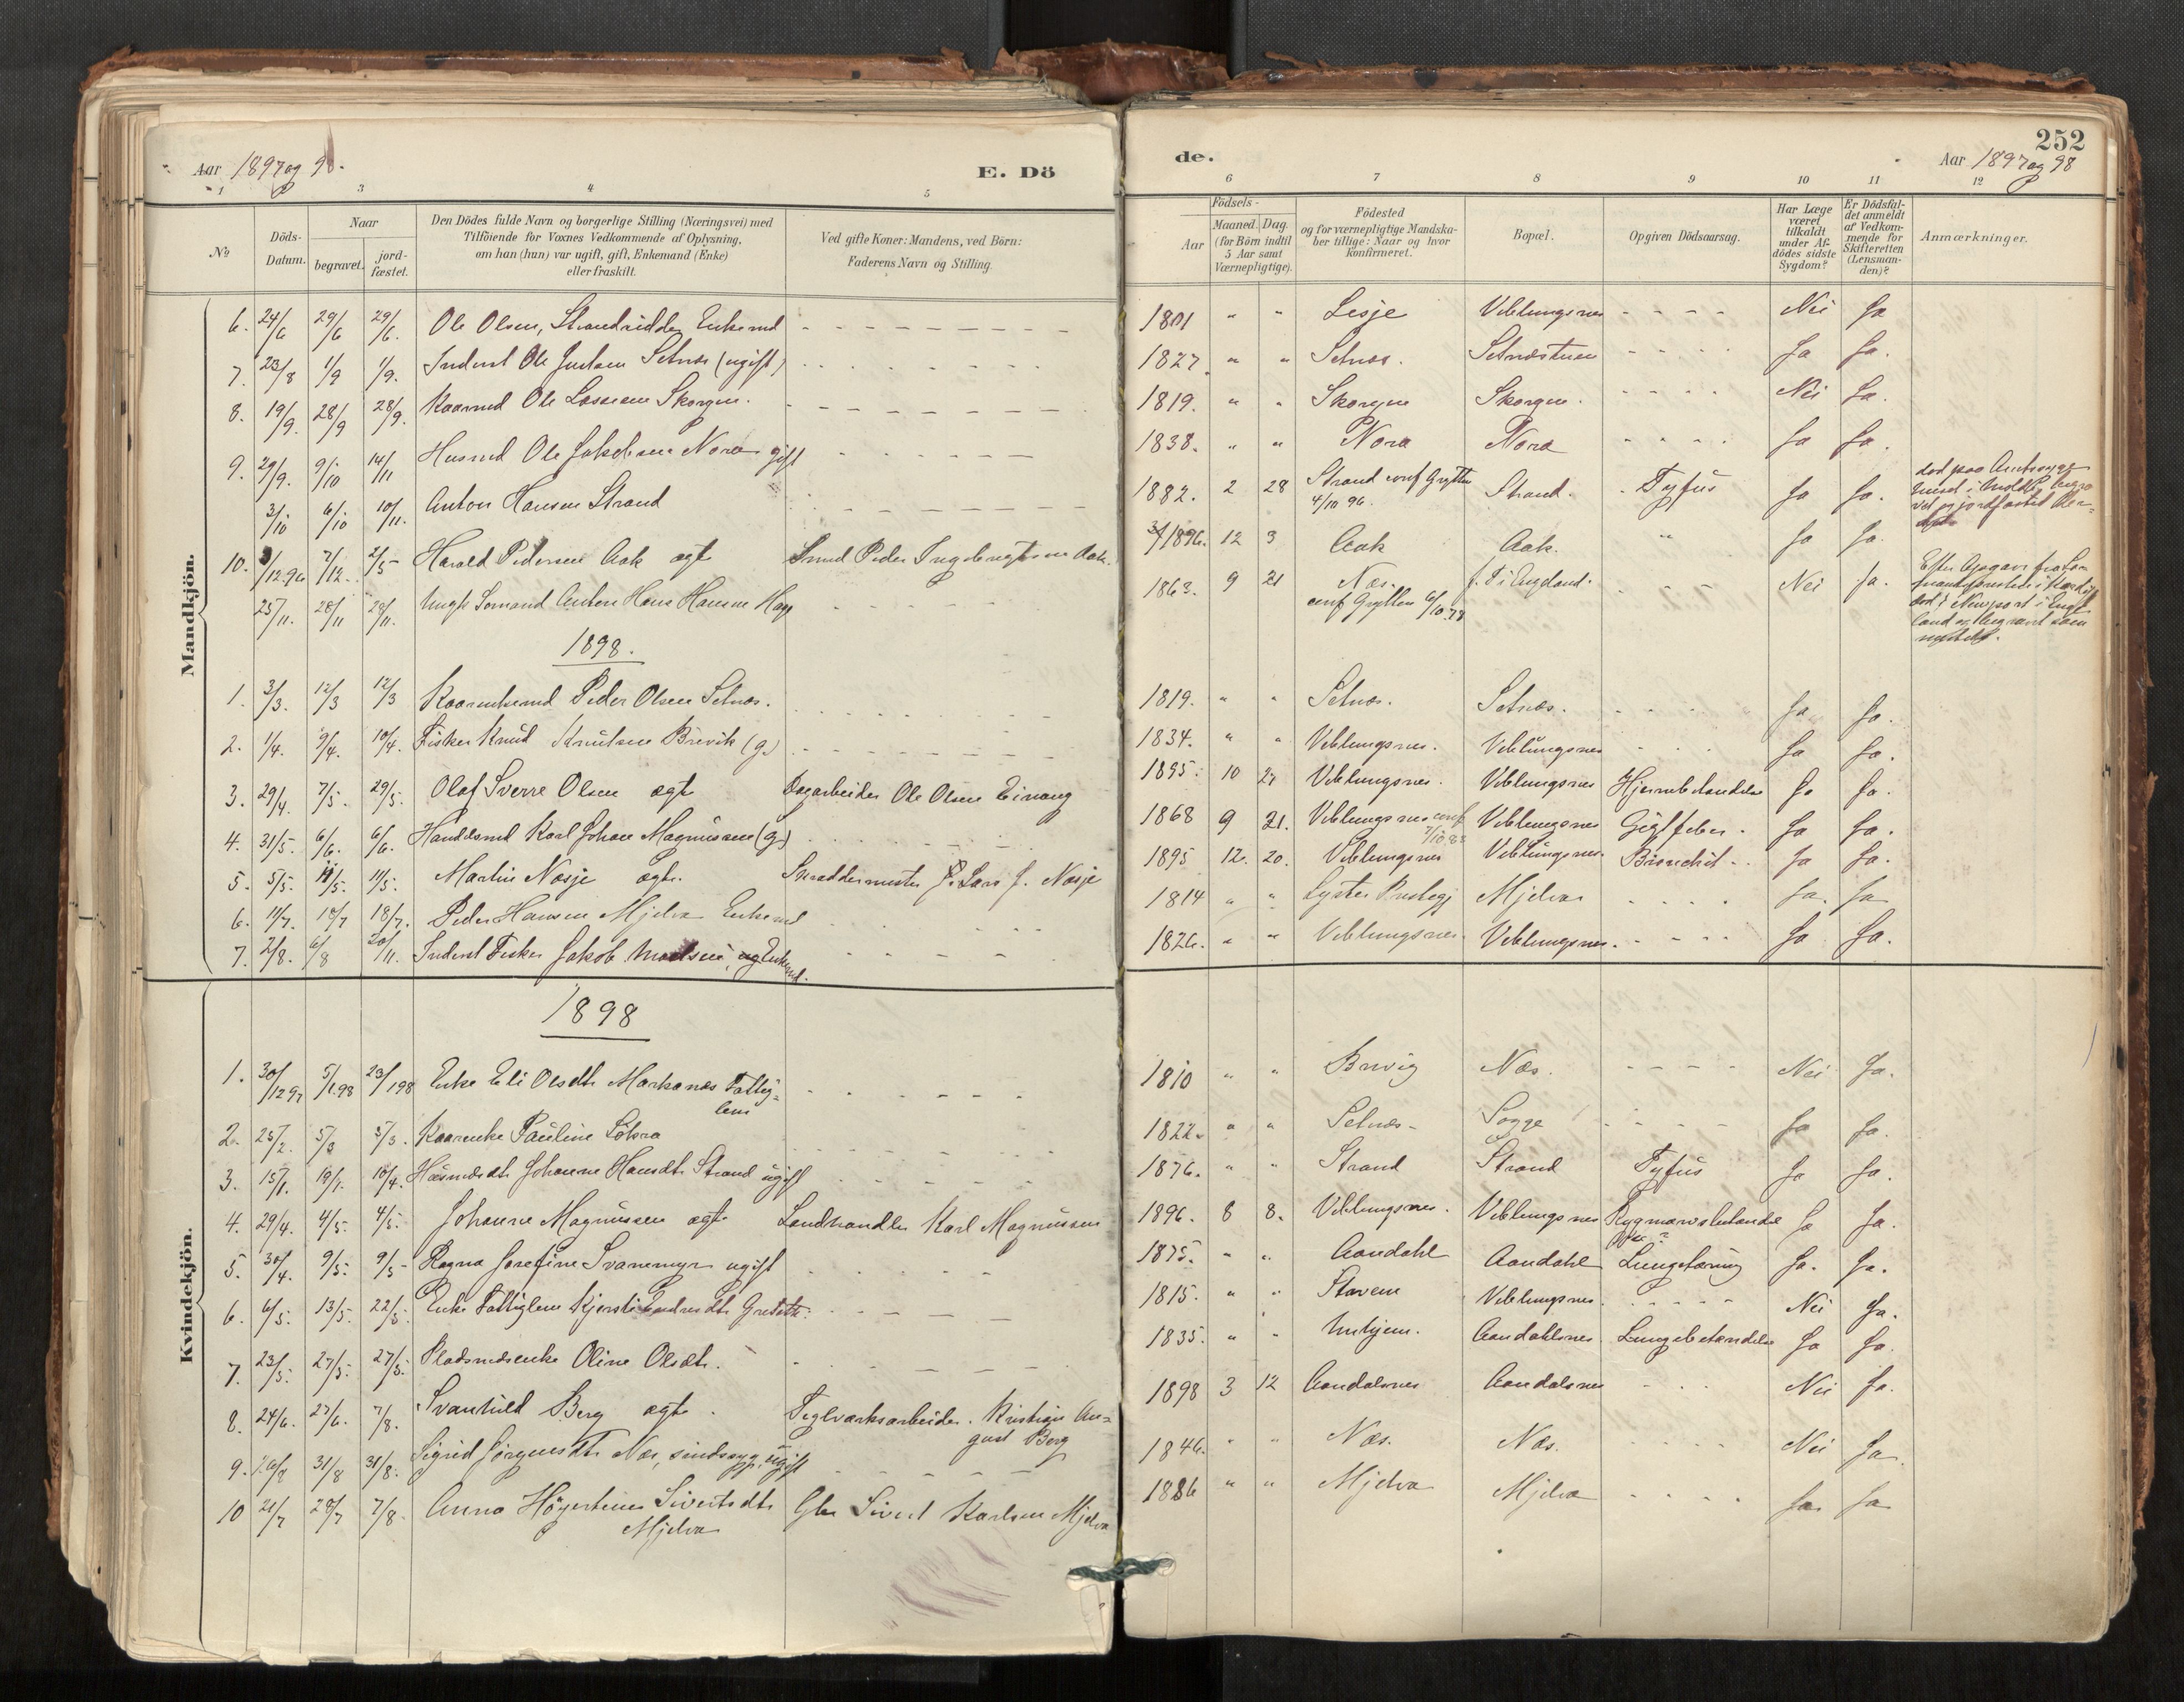 Aar 1897 og 98.
E. Dö
de.
252
Aar 1897 og 98
1 3 4 5 6 7 8 9 10 11 12
No
Döds-Datum.
Naar
begravet.
jord-fæstet.
Den Dödes fulde Navn og borgerlige Stilling (Næringsvei) med
Tilföiende for Voxnes Vedkommende af Oplysning,
om han (hun) var ugift, gift, Enkemand (Enke)
eller fraskilt.
Ved gifte Koner: Mandens, ved Börn:
Faderens Navn og Stilling.
Födsels-
Aar
Maaned. Dag.
(for Börn indtil
5 Aar samt
Værnepligtige).
Födested
og for værnepligtige Mandska-
ber tillige: Naar og hvor
konfirmeret.
Bopæl.
Opgiven Dödsaarsag.
Har Læge
været
tilkaldt
under Af-
dödes sidste
Sygdom?
Er Dödsfal-
det anmeldt
af Vedkom-
mende for
Skifteretten
(Lensman-
den)?
Anmærkninger.
Mandkjön.
6. 24/6 29/6 29/6. Ole Olsen, Enkemd 1801 " " Lesje Veblungsnes Nei Ja
7. 23/8 1/9 1/9. Inderst Ole Setnæs (ugift) 1827. " " Setnæs. Setnæstuen Ja Ja.
8. 19/9. 28/9 28/9. Kaarmd Ole Lassesen Skorgen. 1819. " " Skorgen Skorgen. Nei Ja.
9. 29/9. 9/10 14/11 Husmd Ole Jakobsen Nora gift 1838. " " Nora Nora Ja Ja.
3/10 6/10 10/11. Anton Hansen Strand 1882. 2 28 Strand conf Grytten 4/10 96. Strand. Tyfus Ja Ja.
10. 3/12.96 7/12. 2/5 Harald Pedersen Aak ægte Smed Peder Ingebrigtsen Aak. 1896. 12 3 Aak Aak. " Ja Ja.
25/11. 28/11 28/11. Ungk Sømand Anton Hans Hansen Hage 1863. 9 21 Næs. conf Grytten 6/10.78 f. T i England. Nei Ja.
død paa
i begra
vet og jordfæstet
Efter
i
død i Newport i Eng
land og begravet sam
1898.
1. 3/3. 12/3 12/3 Kaarenkemd Peder Olsen Setnæs. 1819. " " Setnæs. Setnæs. Ja Ja.
2. 1/4. 9/4. 10/4. Fisker Knud Knutsen Brevik (g.) 1834. " " Veblungsnes. Veblungsnes Ja Ja.
3. 29/4. 7/5. 29/5. Olaf Sverre Olsen ægte Dagarbeider Ole Olsen Einang 1895. 10 27 Veblungsnes. Veblungsnes Hjernebetændelse Ja Ja.
4. 31/5. 6/6. 6/6. Handelsmd Karl Johan Magnussen (g.) 1868 9 21. Veblungsnes conf 7/10.83 Veblungsnes Gigtfeber. Ja Ja.
5. 5/5. 11/5. 11/5. Martin Næsje ægte. Skræddermester Lars J. Næsje 1895 12. 20. Veblungsnes Veblungsnes. Ja Ja.
6. 11/7. 18/7 18/7. Peder Hansen Mjelva Enkemd 1814 " " Lyster Prestegj Mjelva Ja. Ja
7. 2/8. 6/8 20/11. Inderst Fisker Jakob Enkemd. 1826. " " Veblungsnes. Veblungsnes. Ja Ja.
Kvindekjön.
1898
1. 30/12 97 5/1.98 23/1 98 Enke Eli Olsdtr Markanæs Fattig-
lem 1810 " " Brevig Næs. Nei Ja.
2. 25/2. 5/3 5/3. Kaarenke Pauline 1822. " " Setnæs. Sogge Ja Ja.
3. 15/1. 19/1. 10/4. Husmdsdtr Johanne Hansdtr Strand ugift 1876. " " Strand Strand Tyfus Ja Ja.
4. 29/4. 4/5. 4/5. Johanne Magnussen ægte Landhandler Karl Magnussen 1896. 8 8. Veblungsnes. Veblungsnes Rygmarvsbetændelse Ja Ja.
5. 30/4. 9/5. 9/5 Ragna Josefine Svanemyr ugift 1875. " " Aandahl Aandahl Lungetæring Ja. Ja.
6. 6/5. 13/5. 22/5. Enke Fattiglem Kjersti 1815. " " Stavem Veblungsnes. Nei Ja.
7. 23/5. 27/5. 27/5. Pladsmdsenke Oline Olsdtr. 1835. " " Unhjem. Aandahlsnes Lungebetændelse Ja Ja.
8. 24/6. 27/6. 7/8. Svanhild Berg ægte. Teglværksarbeider. Kristian Au-
gust Berg 1898 3 12 Aandalsnes Aandalsnes Nei Ja.
9. 26/8 31/8 31/8. Sigrid Jørgensdtr Næs, sindssyg, ugift 1846. " " Næs. Næs. Nei Ja.
10 21/7 28/7 7/8. Anna Sivertsdtr
Mjelva Gbr Sivert Karlsen Mjelva 1886 " " Mjelva Mjelva Ja Ja